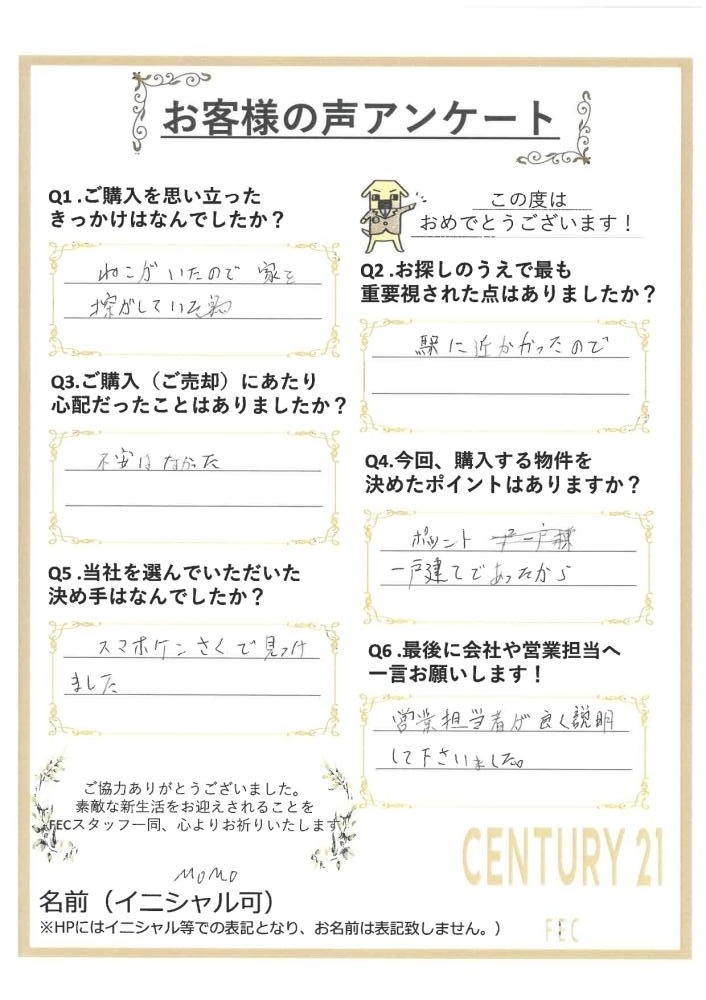 お客様の声アンケート
Q1.ご購入を思い立った
きっかけはなんでしたか？
ねこがいたので 家を
探がしていた為
この度は
おめでとうございます！
Q2.お探しのうえで最も
重要視された点はありましたか？
駅に近かかったので
Q3.ご購入（ご売却）にあたり
心配だったことはありましたか？
不安はなかった
Q4.今回、購入する物件を
決めたポイントはありますか？
ポイント
一戸建てであったから
Q5.当社を選んでいただいた
決め手はなんでしたか？
スマホケンさくで見つけ
ました
Q6.最後に会社や営業担当へ
一言お願いします！
営業担当者が良く説明
して下さいました。
ご協力ありがとうございました。
素敵な新生活をお迎えされることを
FECスタッフ一同、心よりお祈りいたします
CENTURY 21
FEC
MOMO
名前（イニシャル可）
※HPにはイニシャル等での表記となり、お名前は表記致しません。）